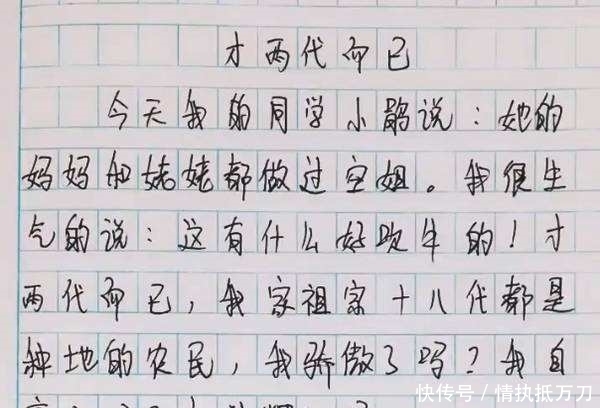 才两代而已
今天我的同学小鹃说：她的
妈妈和姥姥都做过空姐。我很生
气的说：这有什么好吹牛的！才
两代而已，我家祖宗十八代都是
种地的农民，我骄傲了吗？我自
快传号／情执抵万刀